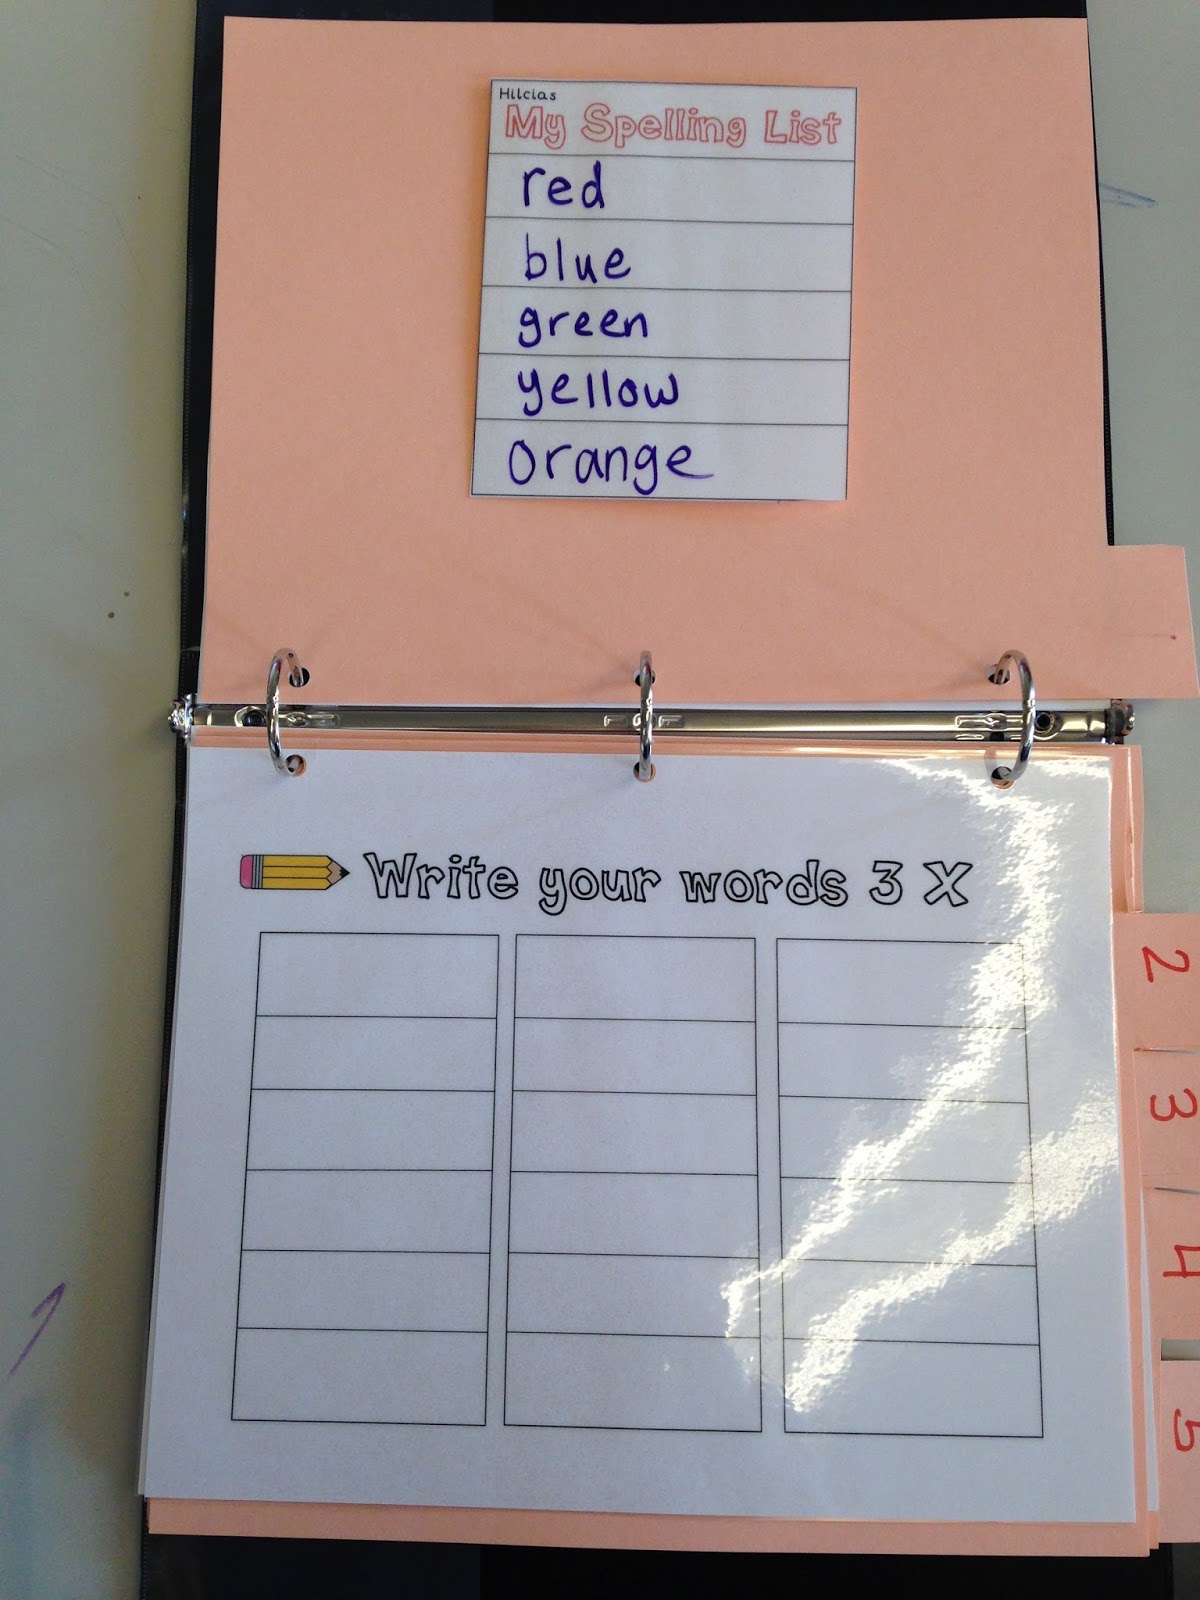 Hilcias
My Spelling List
red
blue
green
yellow
orange
Write your words 3 X
2
3
4
5